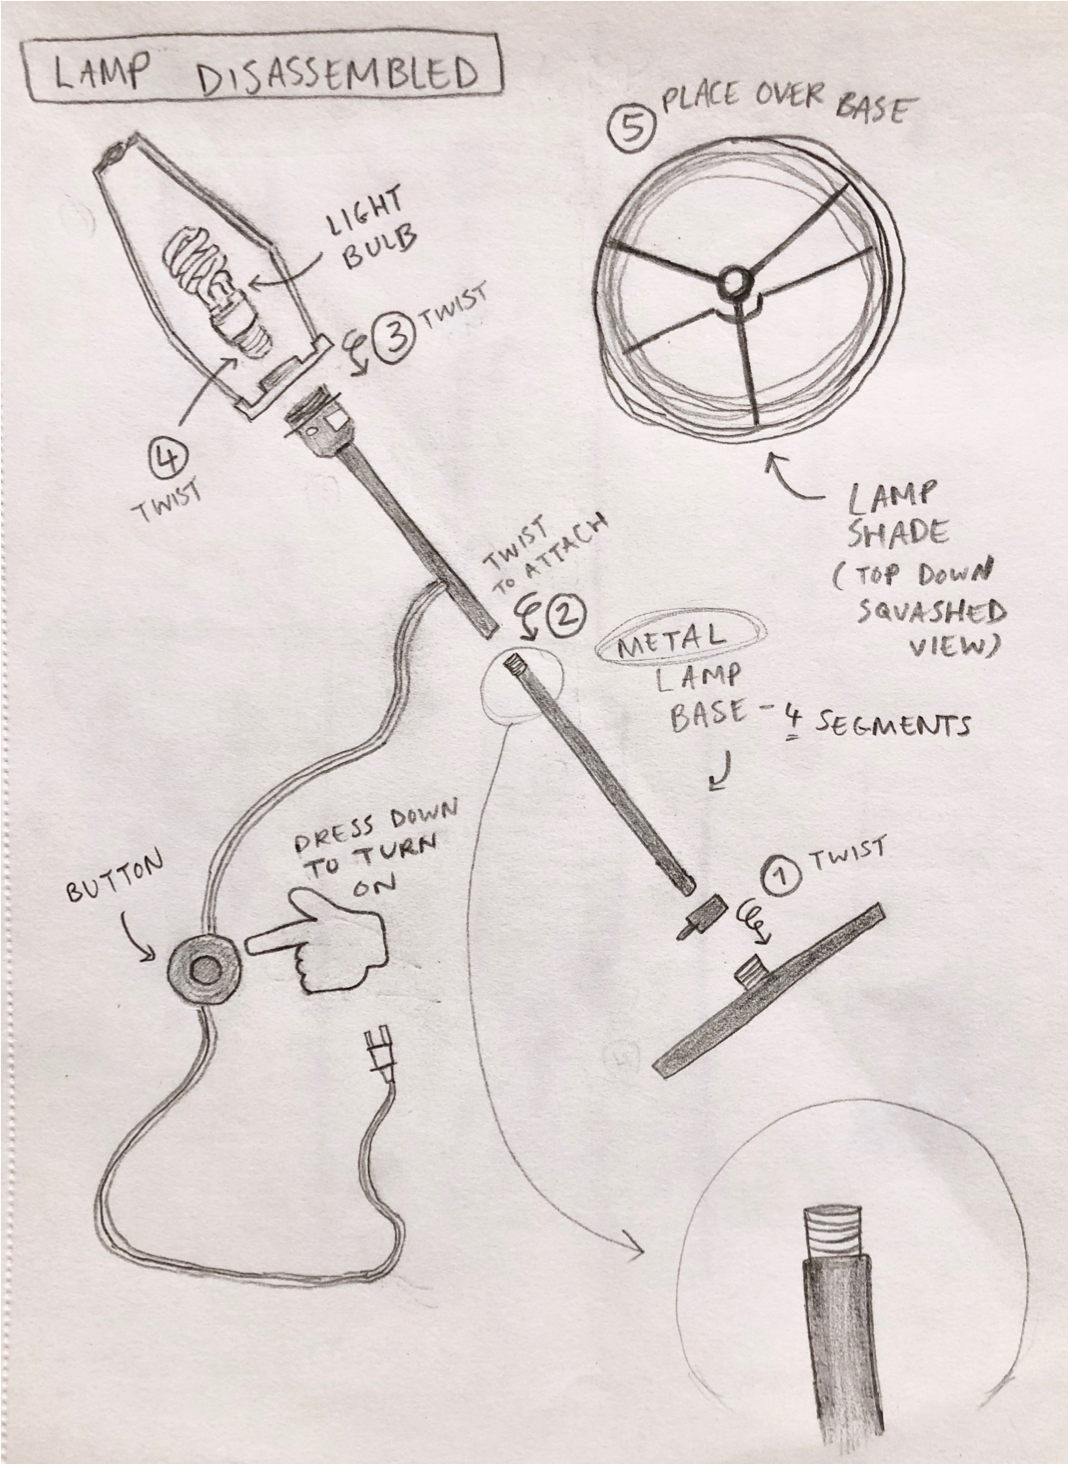 LAMP DISASSEMBLED
5 PLACE OVER BASE
LIGHT
BULB
3 TWIST
4
TWIST
LAMP
SHADE
(TOP DOWN
SQUASHED
VIEW)
TWIST
TO ATTACH
2
METAL
LAMP
BASE - 4 SEGMENTS
PRESS DOWN
TO TURN
ON
BUTTON
1 TWIST